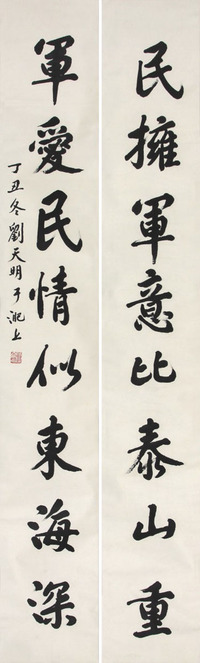 民擁軍意比泰山重
軍愛民情似東海深
丁丑冬劉天明于淝上